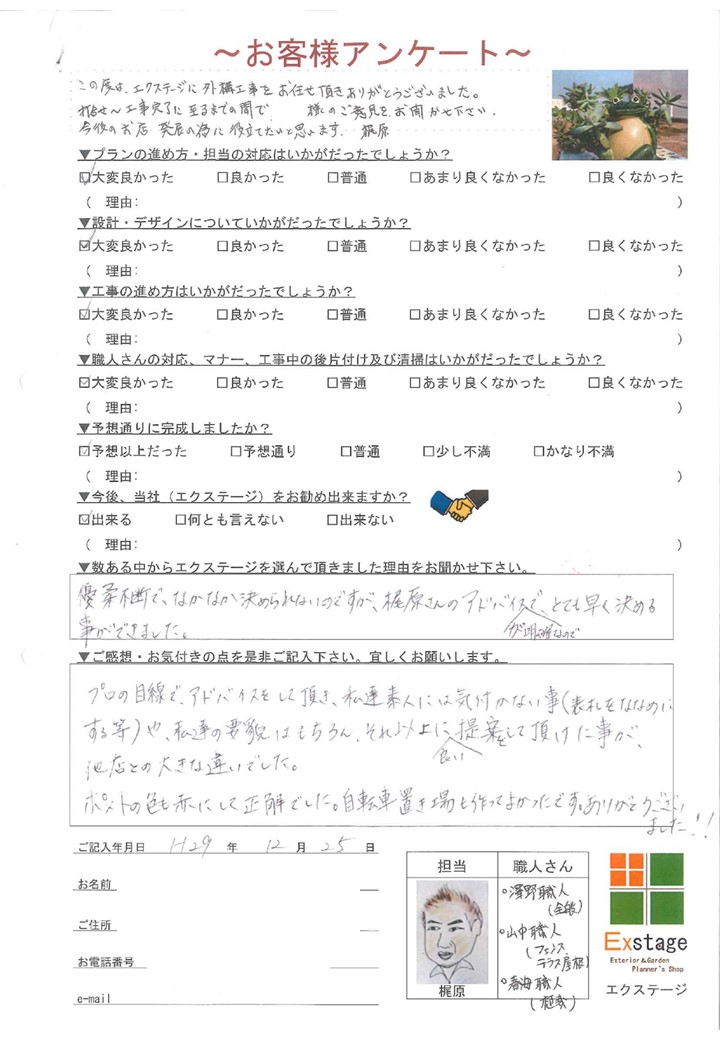 ～お客様アンケート～
この度は、エクステージに外構工事をお任せ頂きありがとうございました。
打合せ～工事完了に至るまでの間で　　様のご意見をお聞かせ下さい。
今後のお店 発展の為に役立てたいと思います。梶原
▼プランの進め方・担当の対応はいかがだったでしょうか？
☑大変良かった　□良かった　□普通　□あまり良くなかった　□良くなかった
（　理由：　）
▼設計・デザインについていかがだったでしょうか？
☑大変良かった　□良かった　□普通　□あまり良くなかった　□良くなかった
（　理由：　）
▼工事の進め方はいかがだったでしょうか？
☑大変良かった　□良かった　□普通　□あまり良くなかった　□良くなかった
（　理由：　）
▼職人さんの対応、マナー、工事中の後片付け及び清掃はいかがだったでしょうか？
☑大変良かった　□良かった　□普通　□あまり良くなかった　□良くなかった
（　理由：　）
▼予想通りに完成しましたか？
☑予想以上だった　□予想通り　□普通　□少し不満　□かなり不満
（　理由：　）
▼今後、当社（エクステージ）をお勧め出来ますか？
☑出来る　□何とも言えない　□出来ない
（　理由：　）
▼数ある中からエクステージを選んで頂きました理由をお聞かせ下さい。
優柔不断で、なかなか決められないのですが、梶原さんのアドバイスで、とても早く決める
が明確なので
事ができました。
▼ご感想・お気付きの点を是非ご記入下さい。宜しくお願いします。
プロの目線で、アドバイスをして頂き、私達素人には気付かない事（表札をななめに
する等）や、私達の要望はもちろん、それ以上に提案をして頂けた事が、
良い
他店との大きな違いでした。
ポストの色も赤にして正解でした。自転車置き場も作ってよかったです。ありがとうござい
ました!!
ご記入年月日　H29 年　12 月　25 日
お名前
ご住所
お電話番号
e-mail
担当
梶原
職人さん
○澤野職人
○山中職人
(フェンス
テラス屋根)
○春海職人
Exstage
Exterior&Garden
Planner's Shop
エクステージ